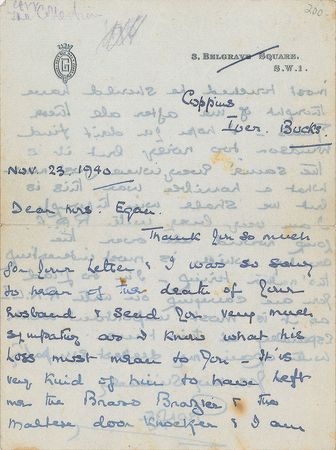 200
3, BELGRAVE SQUARE.
S.W.1.
Coppins
Iver. Bucks
Nov. 23. 1940
Dear Mrs. Egan.
Thank you so much
for your letter & I was so sorry
to hear of the death of your
husband & send you very much
sympathy as I know what his
loss must mean to you. It is
very kind of him to have left
me the Brass Brazier & the
Maltese door knocker & I am